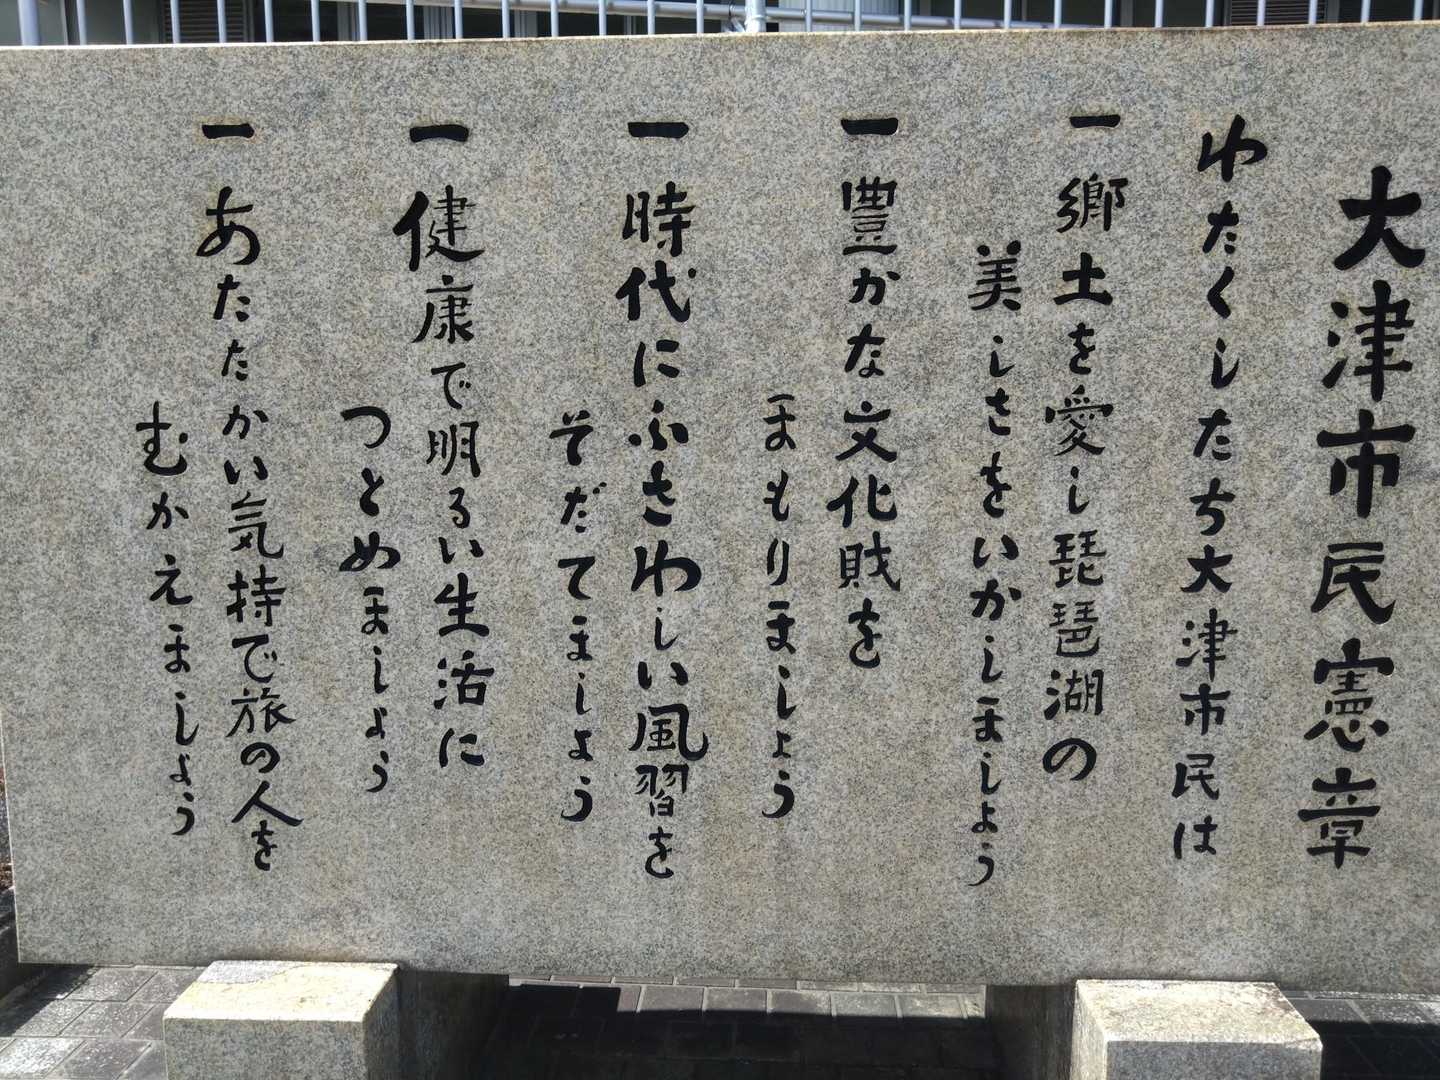 大津市民憲章
わたくしたち大津市民は
一 郷土を愛し琵琶湖の
美しさをいかしましょう
一 豊かな文化財を
まもりましょう
一 時代にふさわしい風習を
そだてましょう
一 健康で明るい生活に
つとめましょう
一 あたたかい気持で旅の人を
むかえましょう